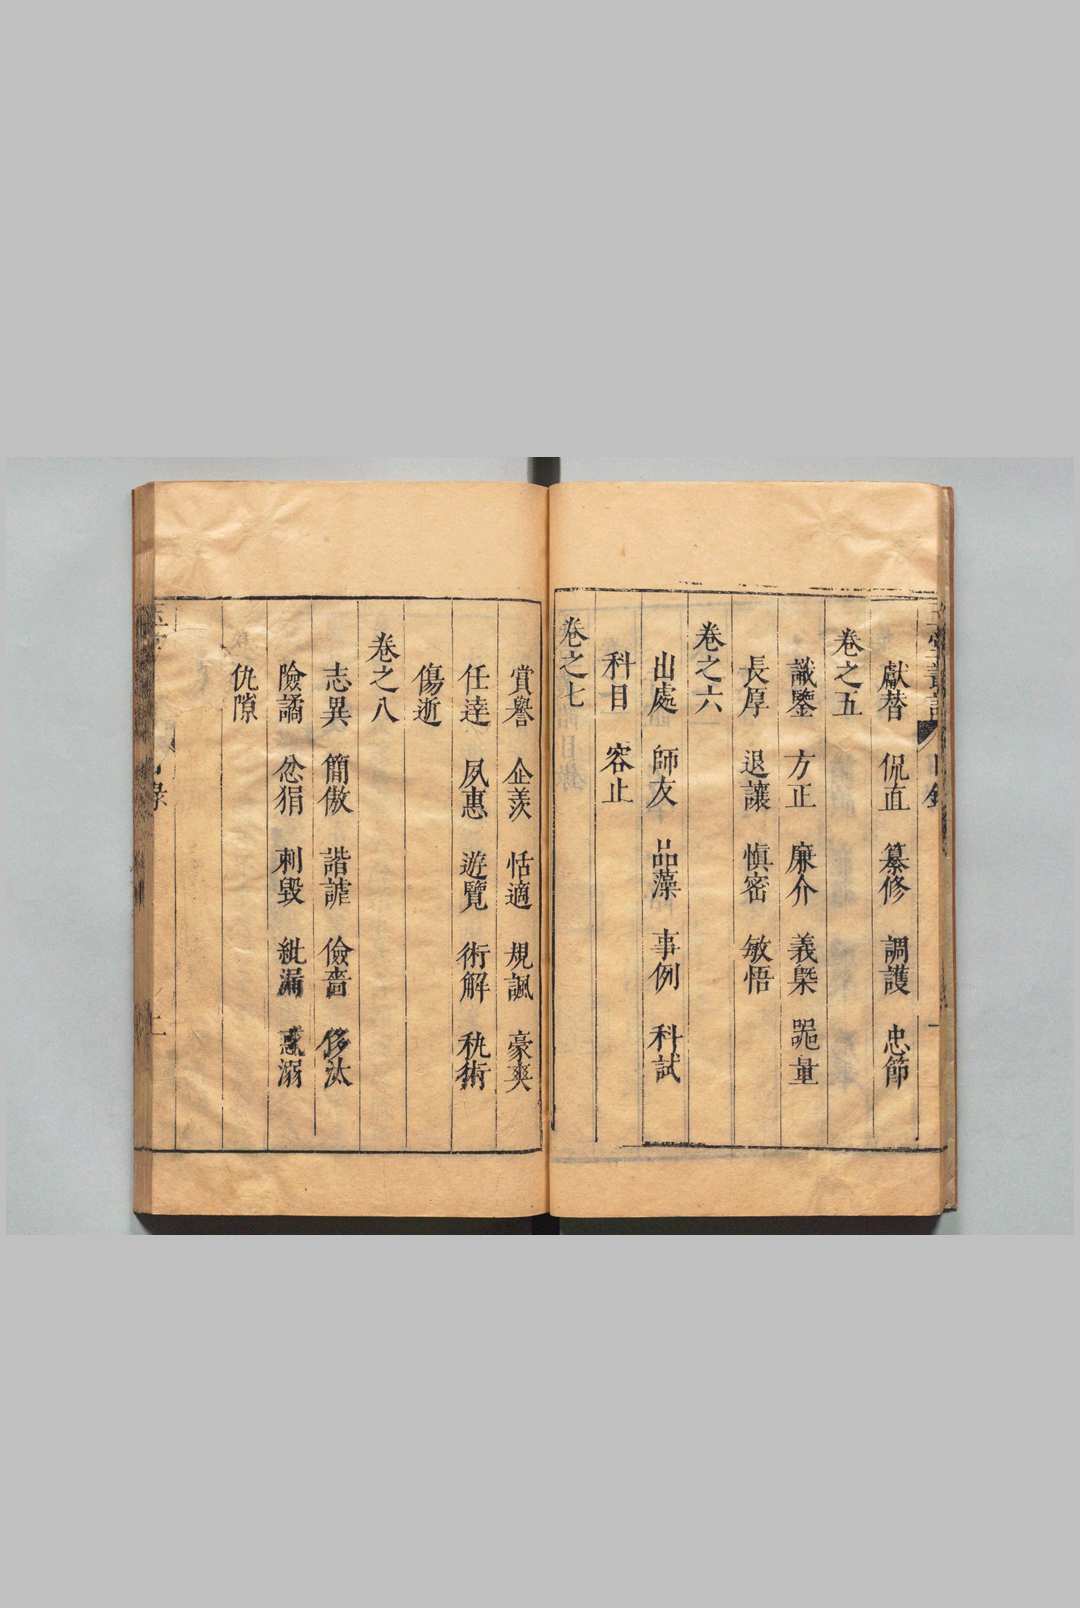 獻替 侃直 纂修 調護 忠節
卷之五
識鑒 方正 廉介 義槩 器量
長厚 退讓 慎密 敏悟
卷之六
出處 師友 品藻 事例 科試
科目 容止
卷之七
賞譽 企羨 恬適 規諷 豪爽
任達 夙惠 遊覽 術解 術
傷逝
卷之八
志異 簡傲 諧謔 儉嗇 侈汰
險譎 忿狷 刺毀 紕漏 惑溺
仇隙